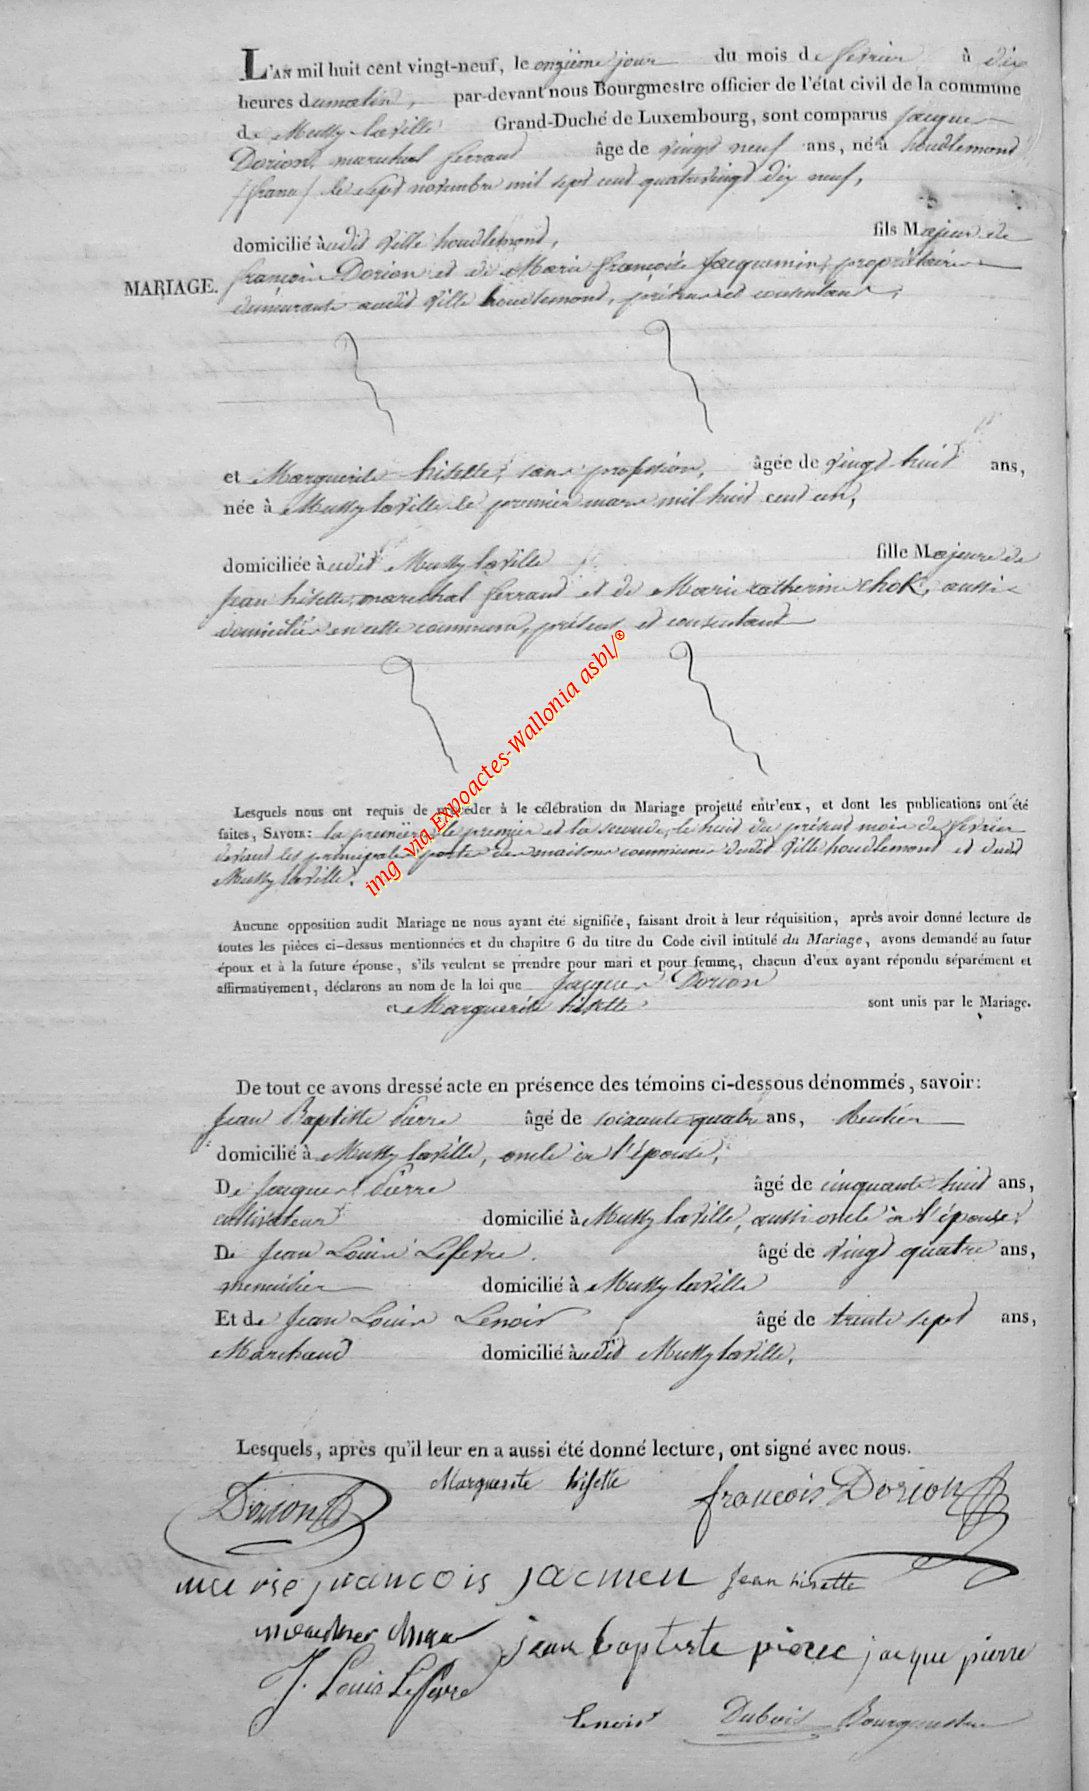 L'AN mil huit cent vingt-neuf, le onzième jour du mois de février à dix
heures du matin, par-devant nous Bourgmestre officier de l'état civil de la commune
de Mussy-laville Grand-Duché de Luxembourg, sont comparus Jacques
Dorion, marechal ferrant âge de vingt neuf ans, né à houdlemond
(france) le sept novembre mil sept cent quatrevingt dix neuf,
domicilié audit Ville houdlemond, fils Majeur de
MARIAGE.
françois Dorion et de Marie françoise Jacquemin, propriétaires
demeurants audit Ville houdlemont, présens et consentans,
et Marguerite hisette, sans profession, âgée de vingt huit ans,
née à Mussy laville le premier mars mil huit cent un,
domiciliée audit Mussy laville fille Majeure de
Jean hisette, marechal ferrant et de Marie catherine chok, aussi
domiciliés en cette commune, présens et consentant
Lesquels nous ont requis de procéder à le célébration du Mariage projetté entr'eux, et dont les publications ont été
faites, SAVOIR: la premiere le premier et la seconde, le huit du présent mois de fevrier
devant les principales portes des maisons communes dudit Ville houdlemont et dudit
Mussy laville.
Aucune opposition audit Mariage ne nous ayant été signifiée, faisant droit à leur réquisition, après avoir donné lecture de
toutes les pièces ci-dessus mentionnées et du chapitre 6 du titre du Code civil intitulé du Mariage, avons demandé au futur
époux et à la future épouse, s'ils veulent se prendre pour mari et pour femme, chacun d'eux ayant répondu séparément et
affirmativement, déclarons au nom de la loi que Jacques Dorion
et Marguerite hisette sont unis par le Mariage.
De tout ce avons dressé acte en présence des témoins ci-dessous dénommés, savoir:
Jean Baptiste Pierre âgé de soixante quatre ans, Rentier
domicilié à Mussy laville, oncle à l'épouse,
De Jacques Pierre âgé de cinquante huit ans,
cultivateur domicilié à Mussy laville, aussi oncle à l'épouse,
De Jean Louis Lefevre. âgé de vingt quatre ans,
menuisier domicilié à Mussy laville
Et de Jean Louis Lenoir âgé de trente sept ans,
Marchand domicilié audit Mussy laville.
Lesquels, après qu'il leur en a aussi été donné lecture, ont signé avec nous.
Dorion Marguerite hisette francois Dorion
francois jacmen Jean hisette
jean baptiste pierre jacque pierre
J. Louis Lefevre
Lenoir Dubois Bourgmestre
img via Expoactes-Wallonia asbl/®